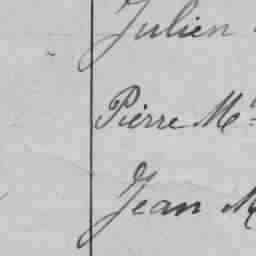 Julien
Pierre M
Jean M